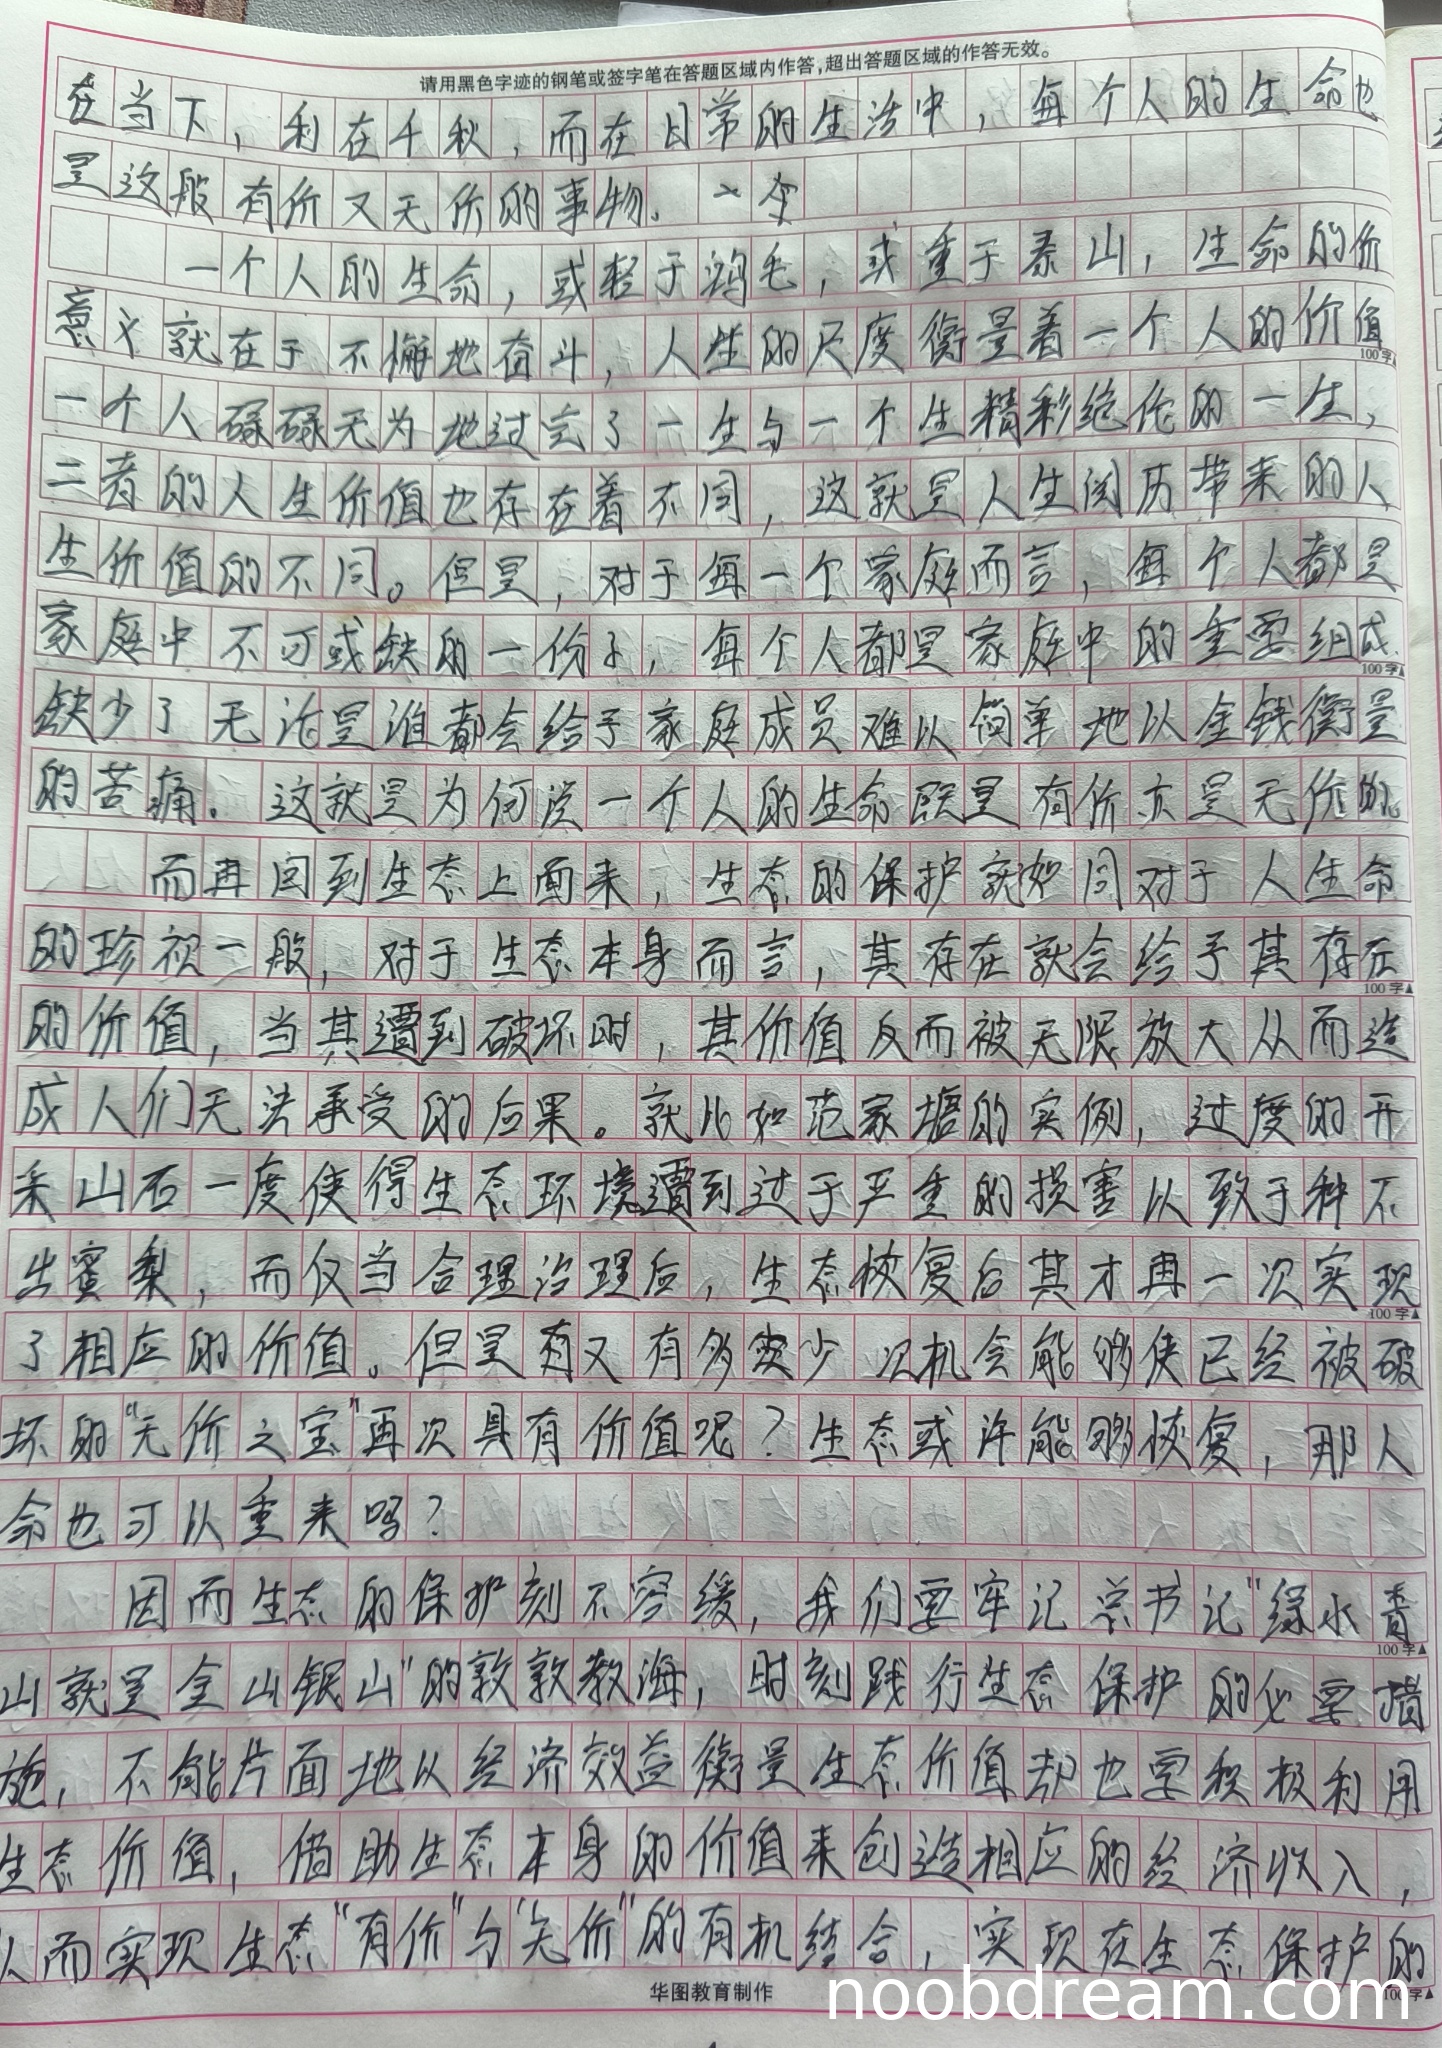 请用黑色字迹的钢笔或签字笔在答题区域内作答,超出答题区域的作答无效。
在当下，利在千秋，而在日常的生活中，每个人的生命也
是这般有价又无价的事物。
一个人的生命，或轻于鸿毛，或重于泰山，生命的价
意义就在于不懈地奋斗，人生的尺度衡量着一个人的价值
100字▲
一个人碌碌无为地过完了一生与一个生精彩绝伦的一生，
二者的人生价值也存在着不同，这就是人生阅历带来的人
生价值的不同。但是，对于每一个家庭而言，每个人都是
家庭中不可或缺的一份子，每个人都是家庭中的重要组成.
100字▲
缺少了无论是谁都会给予家庭成员难以简单地以金钱衡量
的苦痛。这就是为何说一个人的生命既是有价亦是无价的.
而再回到生态上面来，生态的保护就如同对于人生命
的珍视一般，对于生态本身而言，其存在就会给予其存在
100字▲
的价值，当其遭到破坏时，其价值反而被无限放大从而造
成人们无法承受的后果。就比如范家塘的实例，过度的开
采山石一度使得生态环境遭到过于严重的损害以致于种不
出蜜梨，而仅当合理治理后，生态恢复后其才再一次实现
100字▲
了相应的价值。但是有又有多少次机会能够使已经被破
坏的"无价之宝"再次具有价值呢？生态或许能够恢复，那人
命也可以重来吗？
因而生态的保护刻不容缓，我们要牢记总书记"绿水青
100字▲
山就是金山银山"的敦敦教海，时刻践行生态保护的必要措
施，不能片面地从经济效益衡量生态价值却也要积极利用
生态价值，借助生态本身的价值来创造相应的经济收入，
从而实现生态"有价"与"无价"的有机结合，实现在生态保护的
100字▲
华图教育制作
noobdream.com